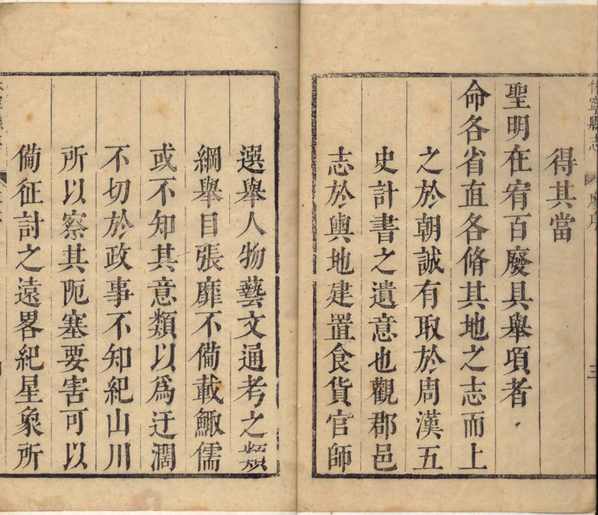 休寧縣志
序
三
得其當
聖明在宥百廢具舉項者
命各省直各脩其地之志而上
之於朝誠有取於周漢五
史計書之遺意也觀郡邑
志於輿地建置食貨官師
選舉人物藝文通考之類
綱舉目張靡不備載鯫儒
或不知其意類以為迂濶
不切於政事不知紀山川
所以察其阨塞要害可以
備征討之遠畧紀星象所